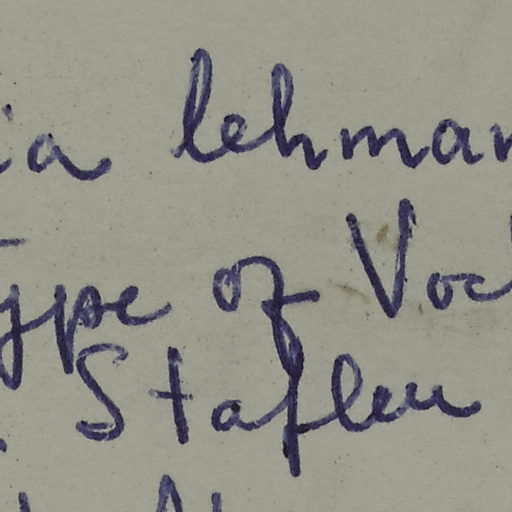 ia lehman
ype of Voc
Stafleu